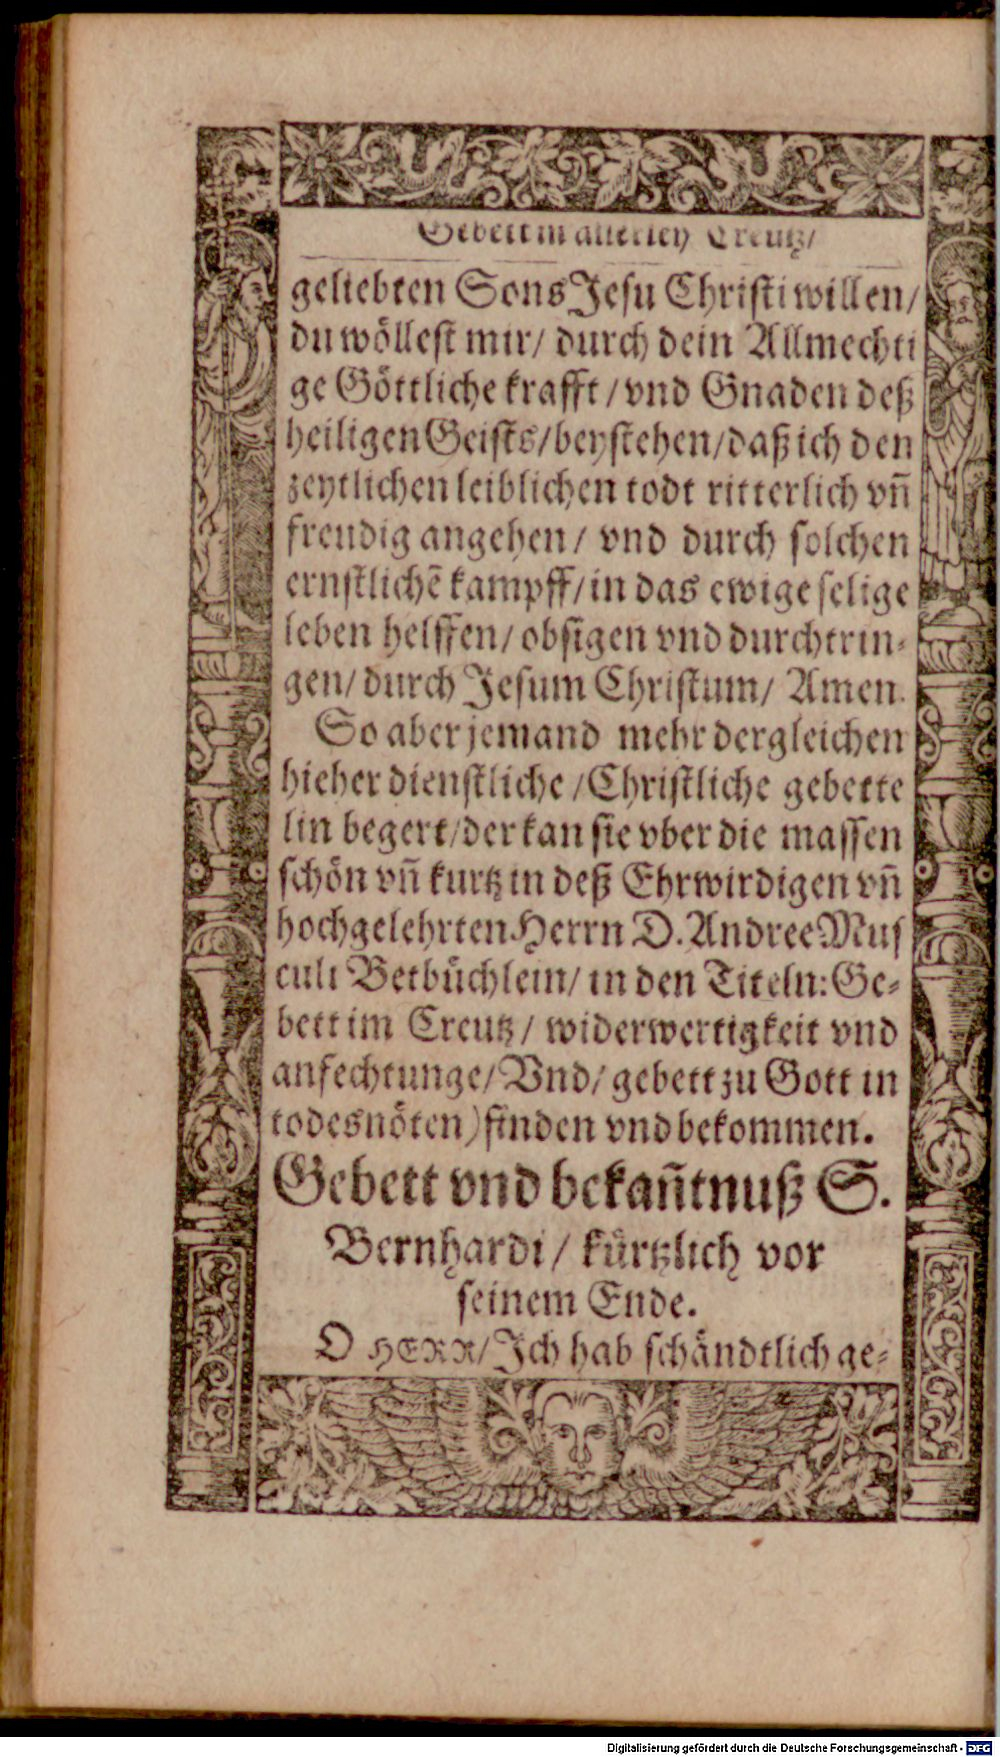 Gebett in allerley Creutz/
geliebten Sons Jesu Christi willen/
du wöllest mir/ durch dein Allmechti
ge Göttliche krafft/ vnd Gnaden deß
heiligen Geists/ beystehen/ daß ich den
zeytlichen leiblichen todt ritterlich vñ
freudig angehen/ vnd durch solchen
ernstlichẽ kampff/ in das ewige selige
leben helffen/ obsigen vnd durchtrin-
gen/ durch Jesum Christum/ Amen.
So aber jemand mehr dergleichen
hieher dienstliche/ Christliche gebette
lin begert/ der kan sie vber die massen
schön vñ kurtz in deß Ehrwirdigen vñ
hochgelehrten Herrn D. Andree Mus
culi Betbüchlein/ in den Titeln: Ge-
bett im Creutz/ widerwertigkeit vnd
anfechtunge/ Vnd/ gebett zu Gott in
todesnöten) finden vnd bekommen.
Gebett vnd bekañtnuß S.
Bernhardi/ kürtzlich vor
seinem Ende.
O HERR/ Ich hab schändtlich ge-
Digitalisierung gefördert durch die Deutsche Forschungsgemeinschaft - DFG